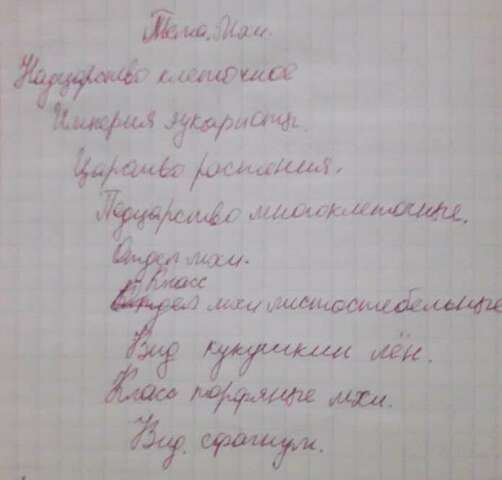 Тема: Мхи.
Надцарство клеточное
Империя эукариоты.
Царство растения.
Подцарство многоклеточные.
Отдел мхи.
Класс
Отдел мхи листостебельные
Вид кукушкин лён.
Класс торфяные мхи.
Вид. сфагнум.